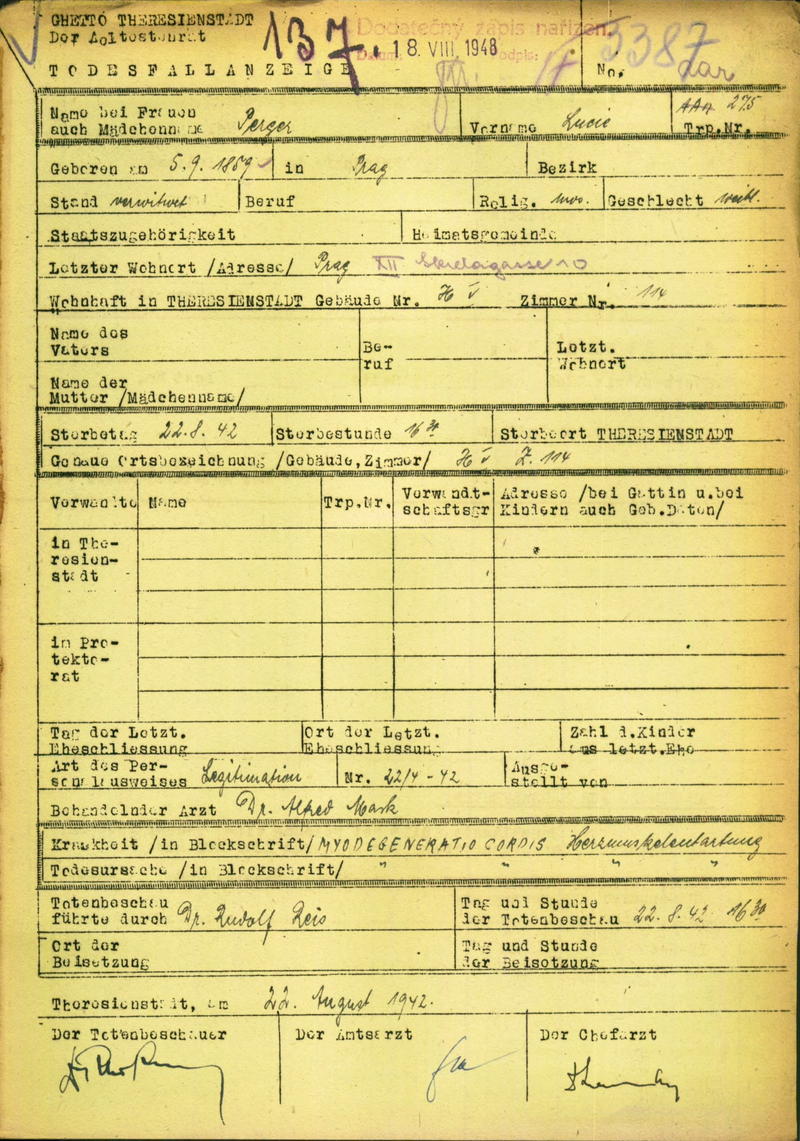 GHETTO THERESIENSTADT
Der Aeltestenrat
137.
Dodatečný zápis nařízen.
18. VIII. 1948
3387
TODESFALLANZEIGE
No.
Name bei Frauen auch Mädchenname Perger Vorname Lucie AAq 275 Trp.Nr.
Geboren am 5.9.1859 in Prag Bezirk
Stand verwitwet Beruf Relig. mos. Geschlecht weibl.
Staatszugehörigkeit Heimatsgemeinde
Letzter Wohnort /Adresse/ Prag XII 10
Wohnhaft in THERESIENSTADT Gebäude Nr. H V Zimmer Nr. 114
Name des Vaters Beruf Letzt. Wohnort
Name der Mutter /Mädchenname/
Sterbetag 22.8.42 Sterbestunde 16 30 Sterbeort THERESIENSTADT
Genaue Ortsbezeichnung /Gebäude,Zimmer/ H V Z. 114
Verwandte Name Trp.Nr. Verwandt-schaftsgr Adresse /bei Gattin u.bei Kindern auch Geb.Daten/
in The-
resien-
stadt
in Pro-
tekto-
rat
Tag der Letzt. Eheschliessung Ort der Letzt. Eheschliessung Zahl d.Kinder aus letzt.Ehe
Art des Per-sonalausweises Legitimation Nr. 22/4-42 Ausge-stellt von
Behandelnder Arzt Dr. Alfred Mark
Krankheit /in Blockschrift/ MYODEGENERATIO CORDIS Herzmuskelentartung
Todesursache /in Blockschrift/ " " " "
Totenbeschau führte durch Dr. Rudolf Reis Tag und Stunde der Totenbeschau 22.8.42 16 30
Ort der Beisetzung Tag und Stunde der Beisetzung
Theresienstadt, am 22. August 1942.
Der Totenbeschauer Der Amtsarzt Der Chefarzt